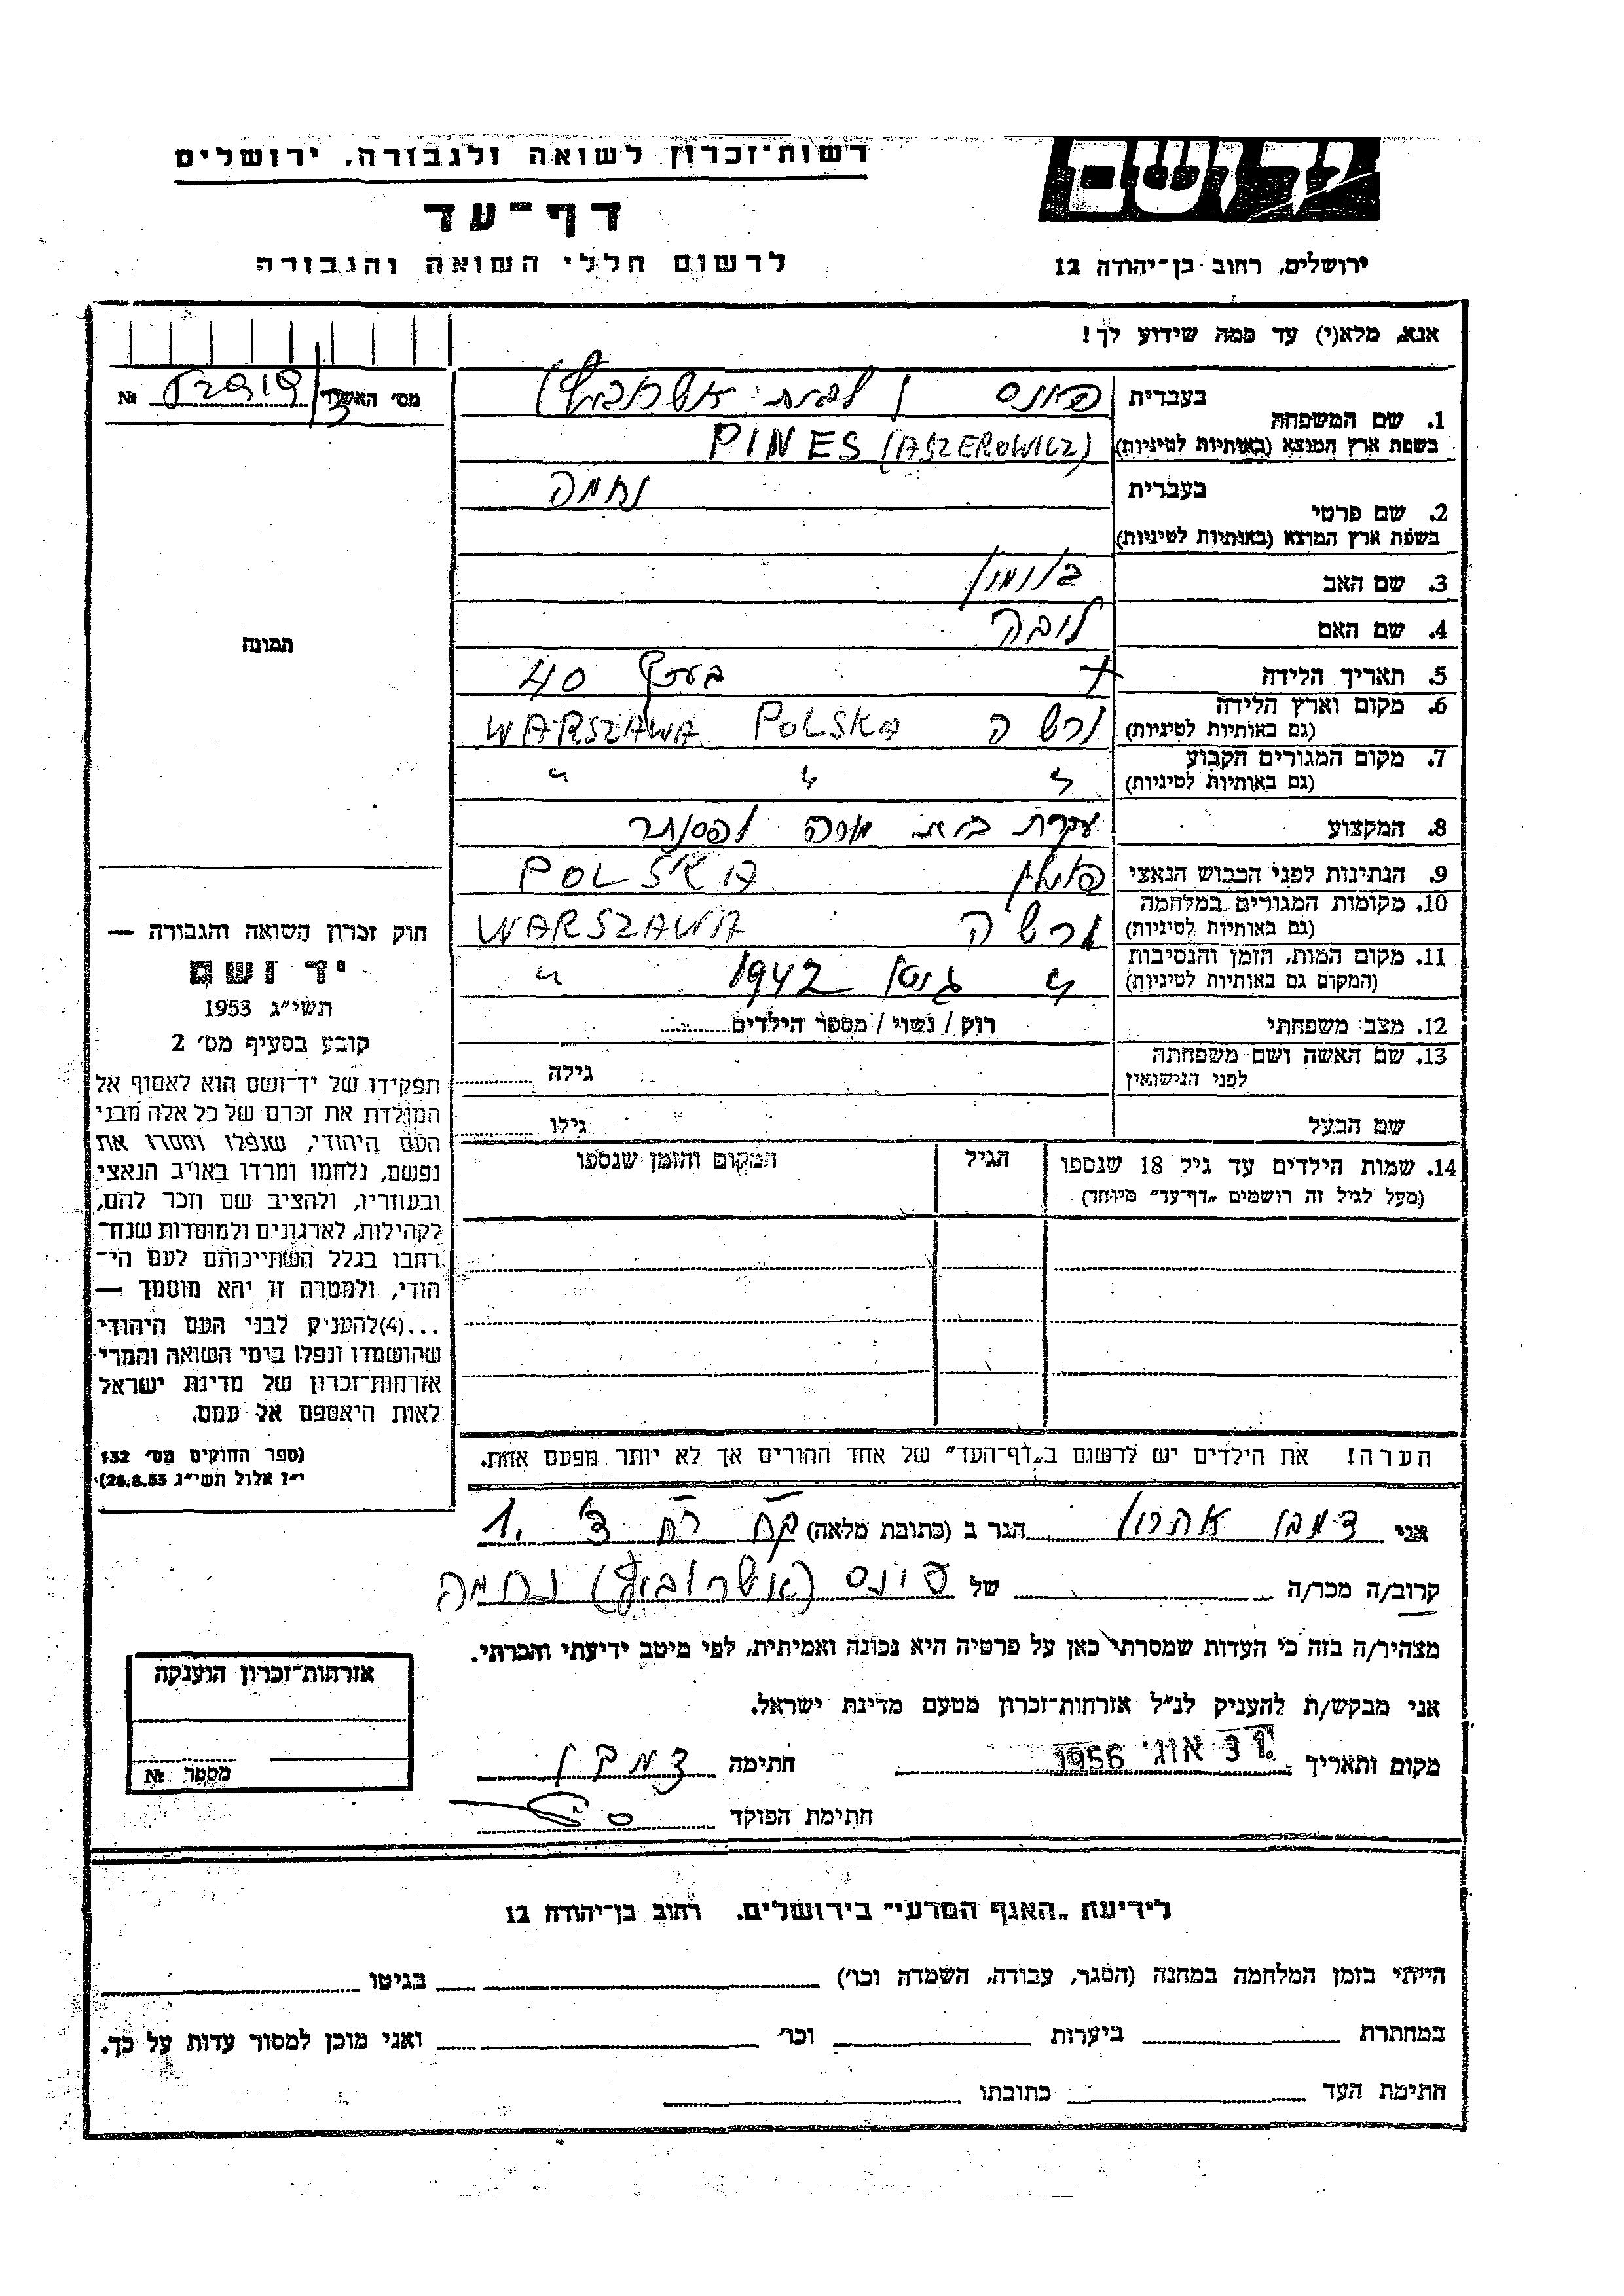 רשות־זכרון לשואה ולגבורה, ירושלים
דף־עד
לרשום חללי השואה והגבורה
יד ושם
ירושלים, רחוב בן־יהודה 12
אנא, מלא(י) עד כמה שידוע לך!
מס' האשה №
1. שם המשפחה בעברית פינס (לבית אשרוביץ)
בשפת ארץ המוצא (באותיות לטיניות) PINES (ASZEROWICZ)
2. שם פרטי בעברית נחמה
בשפת ארץ המוצא (באותיות לטיניות)
3. שם האב
4. שם האם ליבה
5. תאריך הלידה בערך 40
6. מקום וארץ הלידה (גם באותיות לטיניות) ורשה WARSZAWA POLSKA
7. מקום המגורים הקבוע (גם באותיות לטיניות) " " "
8. המקצוע עקרת בית
9. הנתינות לפני הכבוש הנאצי פולין POLSKA
10. מקומות המגורים במלחמה (גם באותיות לטיניות) ורשה WARSZAWA
11. מקום המות, הזמן והנסיבות (המקום גם באותיות לטיניות) " גיטו 1942 "
12. מצב משפחתי רוק / נשוי / מספר הילדים
13. שם האשה ושם משפחתה לפני הנישואין גילה
שם הבעל גילו
14. שמות הילדים עד גיל 18 שנספו (מעל לגיל זה רושמים „דף־עד" מיוחד) הגיל המקום והזמן שנספו
הערה! את הילדים יש לרשום ב„דף־העד" של אחד ההורים אך לא יותר מפעם אחת.
תמונה
חוק זכרון השואה והגבורה —
יד ושם
תשי"ג 1953
קובע בסעיף מס' 2
תפקידו של יד־ושם הוא לאסוף אל
המולדת את זכרם של כל אלה מבני
העם היהודי, שנפלו ומסרו את
נפשם, נלחמו ומרדו באויב הנאצי
ובעוזריו, ולהציב שם וזכר להם,
לקהילות, לארגונים ולמוסדות שנח־
רחבו בגלל השתייכותם לעם הי־
הודי, ולמטרה זו יהא מוסמך —
...(4)להעניק לבני העם היהודי
שהושמדו ונפלו בימי השואה והמרי
אזרחות־זכרון של מדינת ישראל
לאות היאספם אל עמם.
(ספר החוקים מס' 132
י"ז אלול תשי"ג 28.8.53)
אני דמבן אהרון הגר ב (כתובת מלאה)
קרוב/ה מכר/ה של פינס (אשרוביץ) נחמה
מצהיר/ה בזה כי העדות שמסרתי כאן על פרטיה היא נכונה ואמיתית, לפי מיטב ידיעתי והכרתי.
אני מבקש/ת להעניק לנ"ל אזרחות־זכרון מטעם מדינת ישראל.
מקום ותאריך 31 אוג' 1956 חתימה דמבן
חתימת הפוקד
אזרחות־זכרון הוענקה
מספר №
לידיעת „האגף המדעי" בירושלים. רחוב בן־יהודה 12
הייתי בזמן המלחמה במחנה (הסגר, עבודה, השמדה וכו') בגיטו
במחתרת ביערות וכו' ואני מוכן למסור עדות על כך.
חתימת העד כתובתו